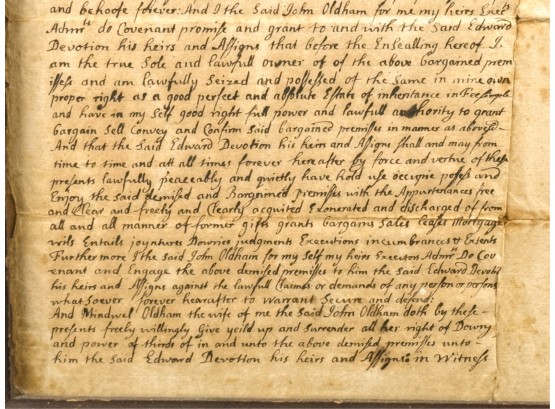 and behoofe forever: And I the Said John Oldham for me my heirs Exec.rs
Admrs do Covenant promise and grant to and with the Said Edward
Devotion his heirs and Assigns that before the Ensealling hereof I.
am the true Sole and lawfull owner of of the above bargained prem
isses and am lawfully Seized and possessed of the Same in mine own
proper right as a good perfect and absolute Estate of inheritance in Fee Simple
and have in my Self good right full power and lawfull authority to grant
bargain Sell Convey and Confirm Said bargained premisses in manner as abovesd-
And that the Said Edward Devotion his heirs and Assigns shall and may from
time to time and att all times forever hereafter by force and vertue of these
presents lawfully peaceably and quietly have hold use occupie posess and
Enjoy the Said demised and Bargained premisses with the Appurtenances free
and Clear and freely and Clearly acquited Exonerated and discharged of from
all and all manner of former gifts grants bargains Sales Leases Mortgage
wills Entails joyntures Dowries judgments Executions incumbrances & Extents
Furthermore I the said John Oldham for my Self my heirs Executors Admrs Do Cov
enant and Engage the above demised premisses to him the Said Edward Devotion
his heirs and Assigns against the lawfull Claimes or demands of any person or persons
whatsoever forever hearafter to Warrant Secure and defend:
And Mindwel Oldham the wife of me the Said John Oldham doth by these-
presents freely willingly Give yeild up and Surrender all her right of Dowry
and power of thirds of in and unto the above demised premisses unto-
him the Said Edward Devotion his heirs and Assigns in Witness